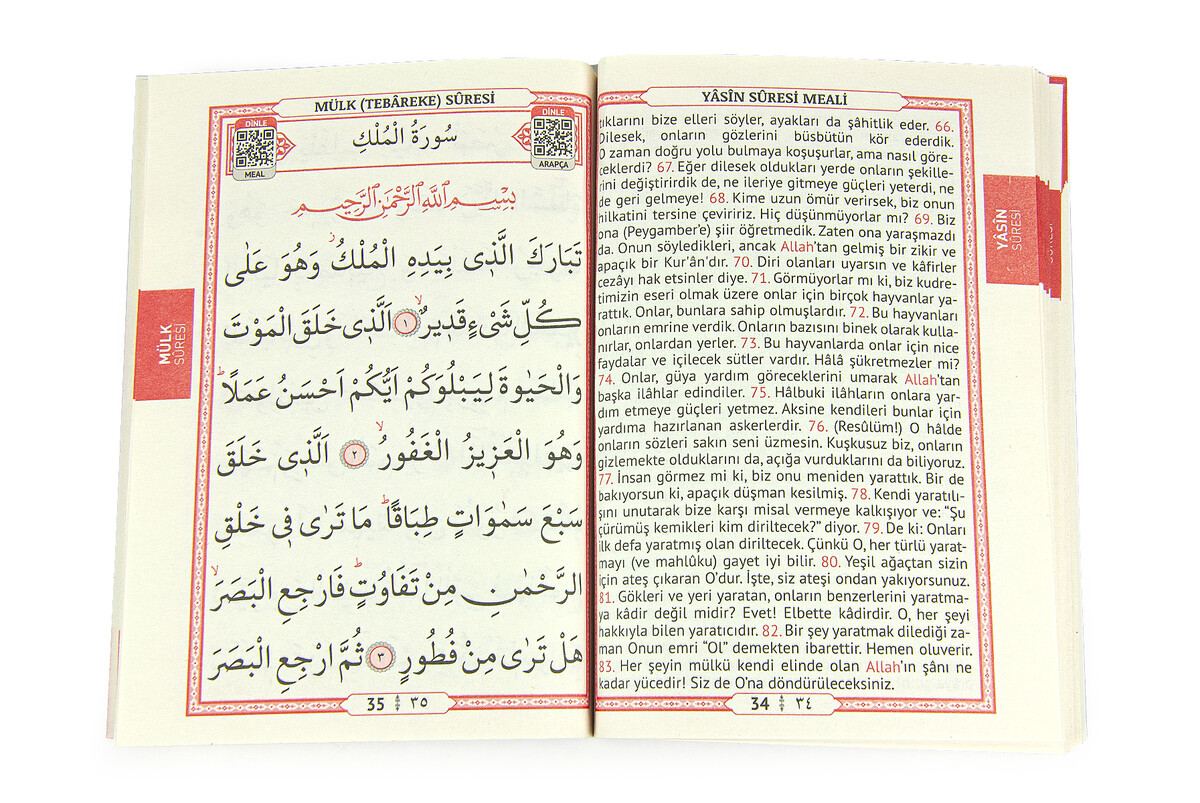 YÂSÎN SÛRESİ MEALİ
ıklarını bize elleri söyler, ayakları da şâhitlik eder. 66.
Dilesek, onların gözlerini büsbütün kör ederdik.
O zaman doğru yolu bulmaya koşuşurlar, ama nasıl göre-
ceklerdi? 67. Eğer dilesek oldukları yerde onların şekille-
rini değiştirirdik de, ne ileriye gitmeye güçleri yeterdi, ne
de geri gelmeye! 68. Kime uzun ömür verirsek, biz onun
hilkatini tersine çeviririz. Hiç düşünmüyorlar mı? 69. Biz
ona (Peygamber'e) şiir öğretmedik. Zaten ona yaraşmazdı
da. Onun söyledikleri, ancak Allah'tan gelmiş bir zikir ve
apaçık bir Kur'ân'dır. 70. Diri olanları uyarsın ve kâfirler
cezâyı hak etsinler diye. 71. Görmüyorlar mı ki, biz kudre-
timizin eseri olmak üzere onlar için birçok hayvanlar ya-
rattık. Onlar, bunlara sahip olmuşlardır. 72. Bu hayvanları
onların emrine verdik. Onların bazısını binek olarak kulla-
nırlar, onlardan yerler. 73. Bu hayvanlarda onlar için nice
faydalar ve içilecek sütler vardır. Hâlâ şükretmezler mi?
74. Onlar, güya yardım göreceklerini umarak Allah'tan
başka ilâhlar edindiler. 75. Hâlbuki ilâhların onlara yar-
dım etmeye güçleri yetmez. Aksine kendileri bunlar için
yardıma hazırlanan askerlerdir. 76. (Resûlüm!) O hâlde
onların sözleri sakın seni üzmesin. Kuşkusuz biz, onların
gizlemekte olduklarını da, açığa vurduklarını da biliyoruz.
77. İnsan görmez mi ki, biz onu meniden yarattık. Bir de
bakıyorsun ki, apaçık düşman kesilmiş. 78. Kendi yaratılı-
şını unutarak bize karşı misal vermeye kalkışıyor ve: “Şu
çürümüş kemikleri kim diriltecek?” diyor. 79. De ki: Onları
ilk defa yaratmış olan diriltecek. Çünkü O, her türlü yarat-
mayı (ve mahlûku) gayet iyi bilir. 80. Yeşil ağaçtan sizin
için ateş çıkaran O'dur. İşte, siz ateşi ondan yakıyorsunuz.
81. Gökleri ve yeri yaratan, onların benzerlerini yaratma-
ya kâdir değil midir? Evet! Elbette kâdirdir. O, her şeyi
hakkıyla bilen yaratıcıdır. 82. Bir şey yaratmak dilediği za-
man Onun emri “Ol” demekten ibarettir. Hemen oluverir.
83. Her şeyin mülkü kendi elinde olan Allah'ın şânı ne
kadar yücedir! Siz de O'na döndürüleceksiniz.
34 ٣٤
YÂSÎN
SÛRESİ
MÜLK (TEBÂREKE) SÛRESİ
DİNLE
MEAL
سُورَةُ الْمُلْكِ
DİNLE
ARAPÇA
بِسْمِ اللّٰهِ الرَّحْمٰنِ الرَّحِيمِ
تَبَارَكَ الَّذٖى بِيَدِهِ الْمُلْكُؗ وَهُوَ عَلٰى
كُلِّ شَیْءٍ قَدٖيرٌۙ ١ اَلَّذٖى خَلَقَ الْمَوْتَ
وَالْحَيٰوةَ لِيَبْلُوَكُمْ اَيُّكُمْ اَحْسَنُ عَمَلًاؕ
وَهُوَ الْعَزٖيزُ الْغَفُورُۙ ٢ اَلَّذٖى خَلَقَ
سَبْعَ سَمٰوَاتٍ طِبَاقًاؕ مَا تَرٰى فٖى خَلْقِ
الرَّحْمٰنِ مِنْ تَفَاوُتٍؕ فَارْجِعِ الْبَصَرَۙ
هَلْ تَرٰى مِنْ فُطُورٍ ٣ ثُمَّ ارْجِعِ الْبَصَرَ
35 ٣٥
MÜLK
SÛRESİ